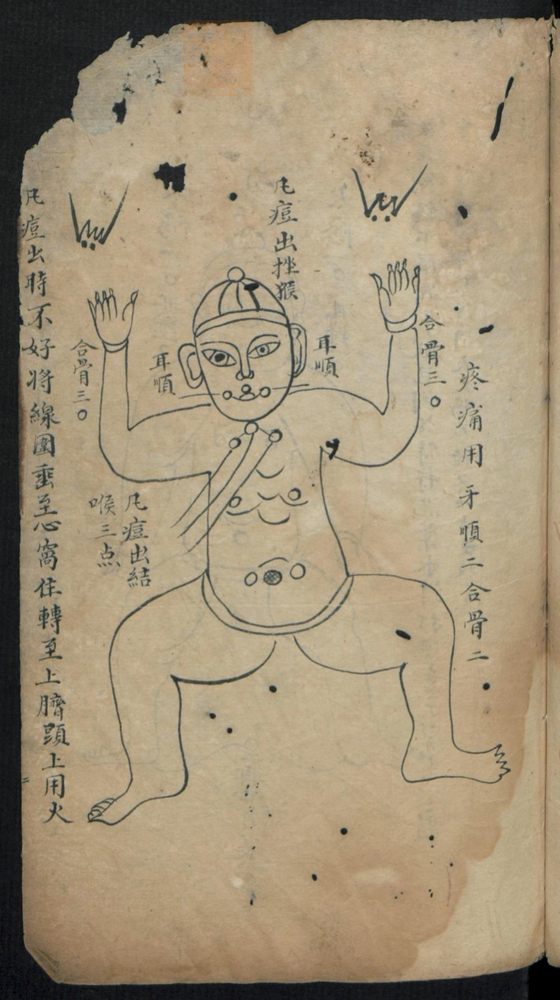 疼痛用牙順二合骨二
合骨三
耳順
凡痘出挫猴
耳順
凡痘出結
喉三点
合骨三
凡痘出時不好将線圍垂至心窩住轉至上臍顕上用火